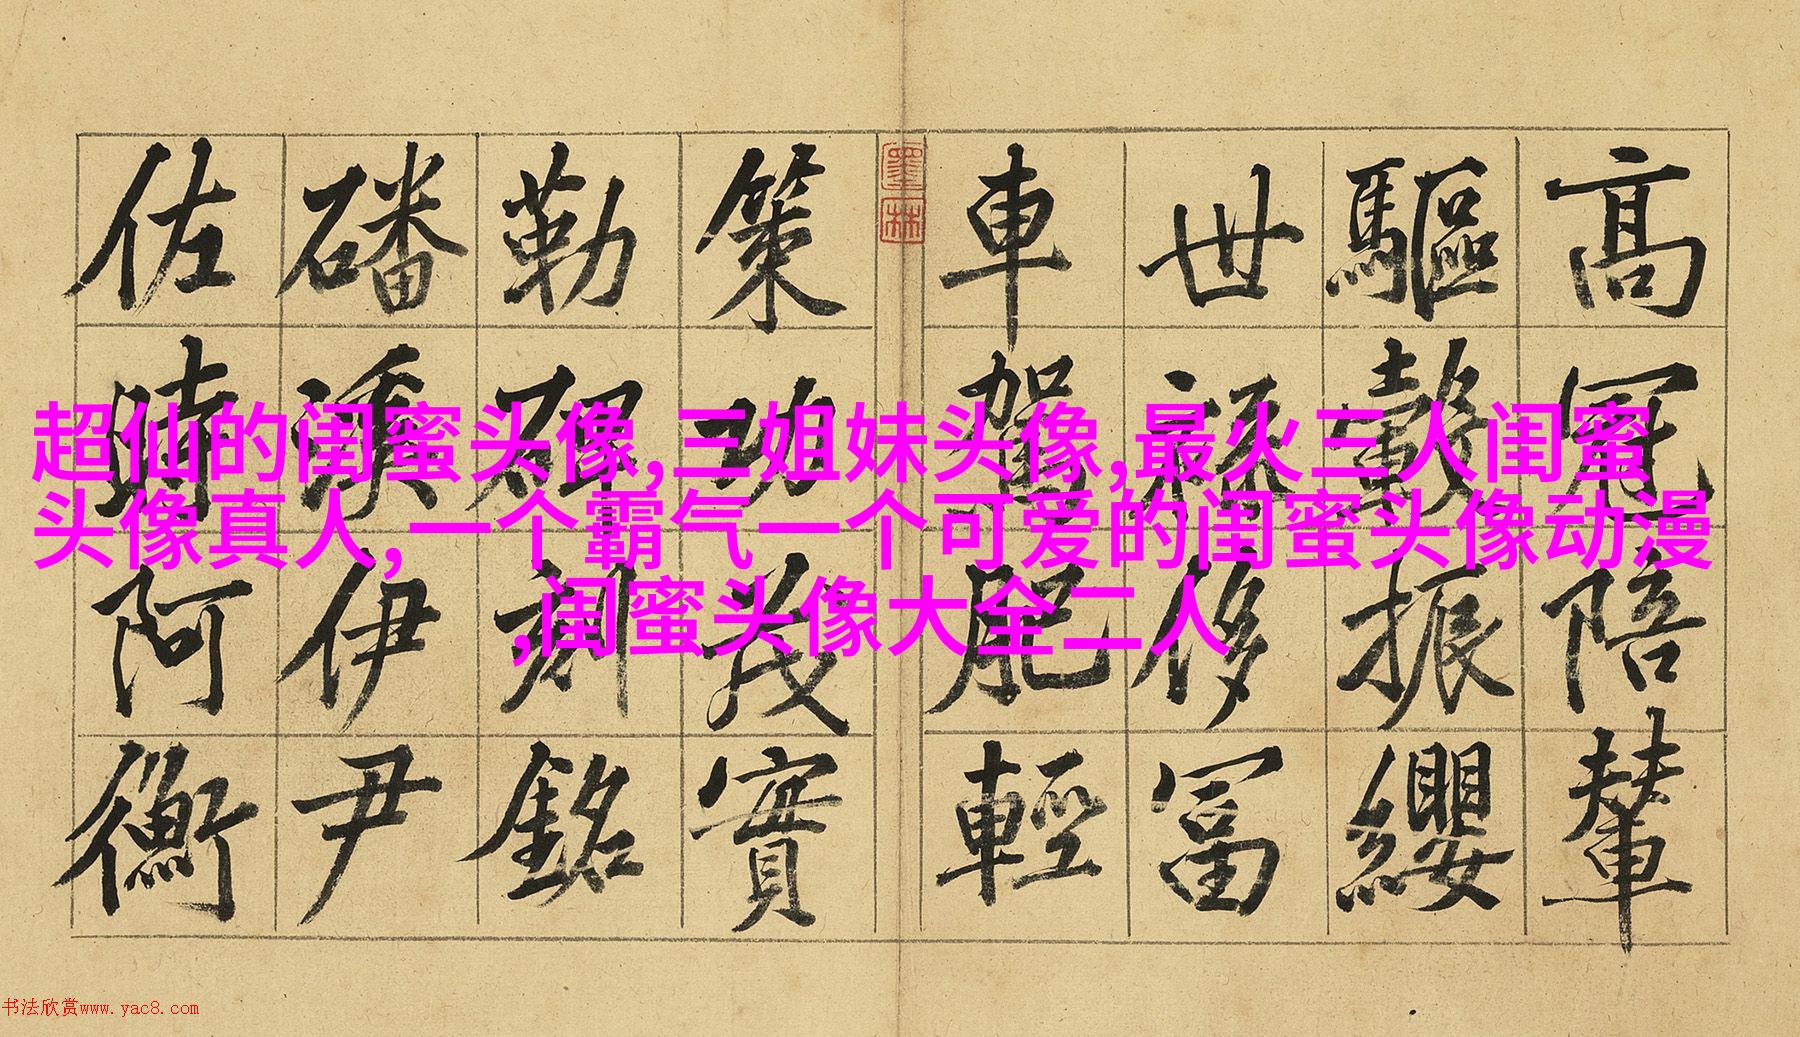 高冠陪輦
驅轂振纓
世祿侈冨
車駕肥輕
策功茂實
勒碑刻銘
磻溪伊尹
佐時阿衡
墨林
超仙的闺蜜头像,三姐妹头像,最火三人闺蜜
头像真人,一个霸气一个可爱的闺蜜头像动漫
,闺蜜头像大全二人
书法欣赏www.yac8.com